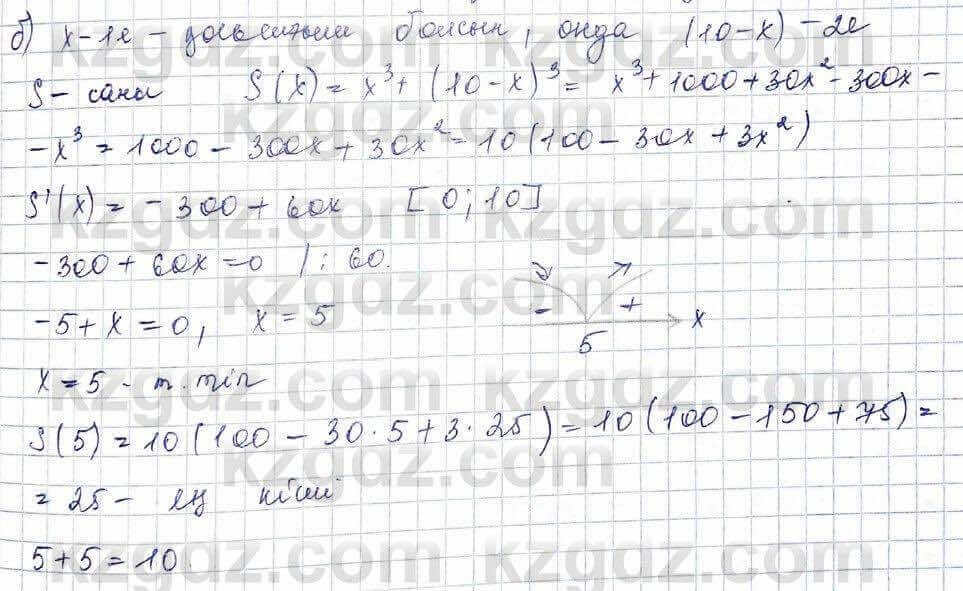 б) x - 1е - болсын, онда (10-x) - 2е
S - саны S(x) = x³ + (10-x)³ = x³ + 1000 + 30x² - 300x -
- x³ = 1000 - 300x + 30x² = 10(100 - 30x + 3x²)
S'(x) = - 300 + 60x [0; 10]
-300 + 60x = 0 / : 60.
-5 + x = 0, x = 5
- + x
5
x = 5 - m. min
S(5) = 10(100 - 30·5 + 3·25) = 10(100 - 150 + 75) =
= 25 - ең кіші
5 + 5 = 10.
kzgdz.com kzgdz.com
kzgdz.com kzgdz.com
kzgdz.com kzgdz.com
kzgdz.com kzgdz.com